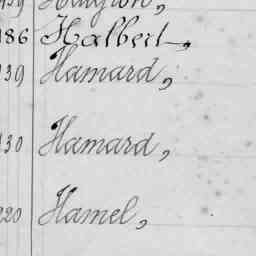 186 Halbert,
139 Hamard,
130 Hamard,
220 Hamel,